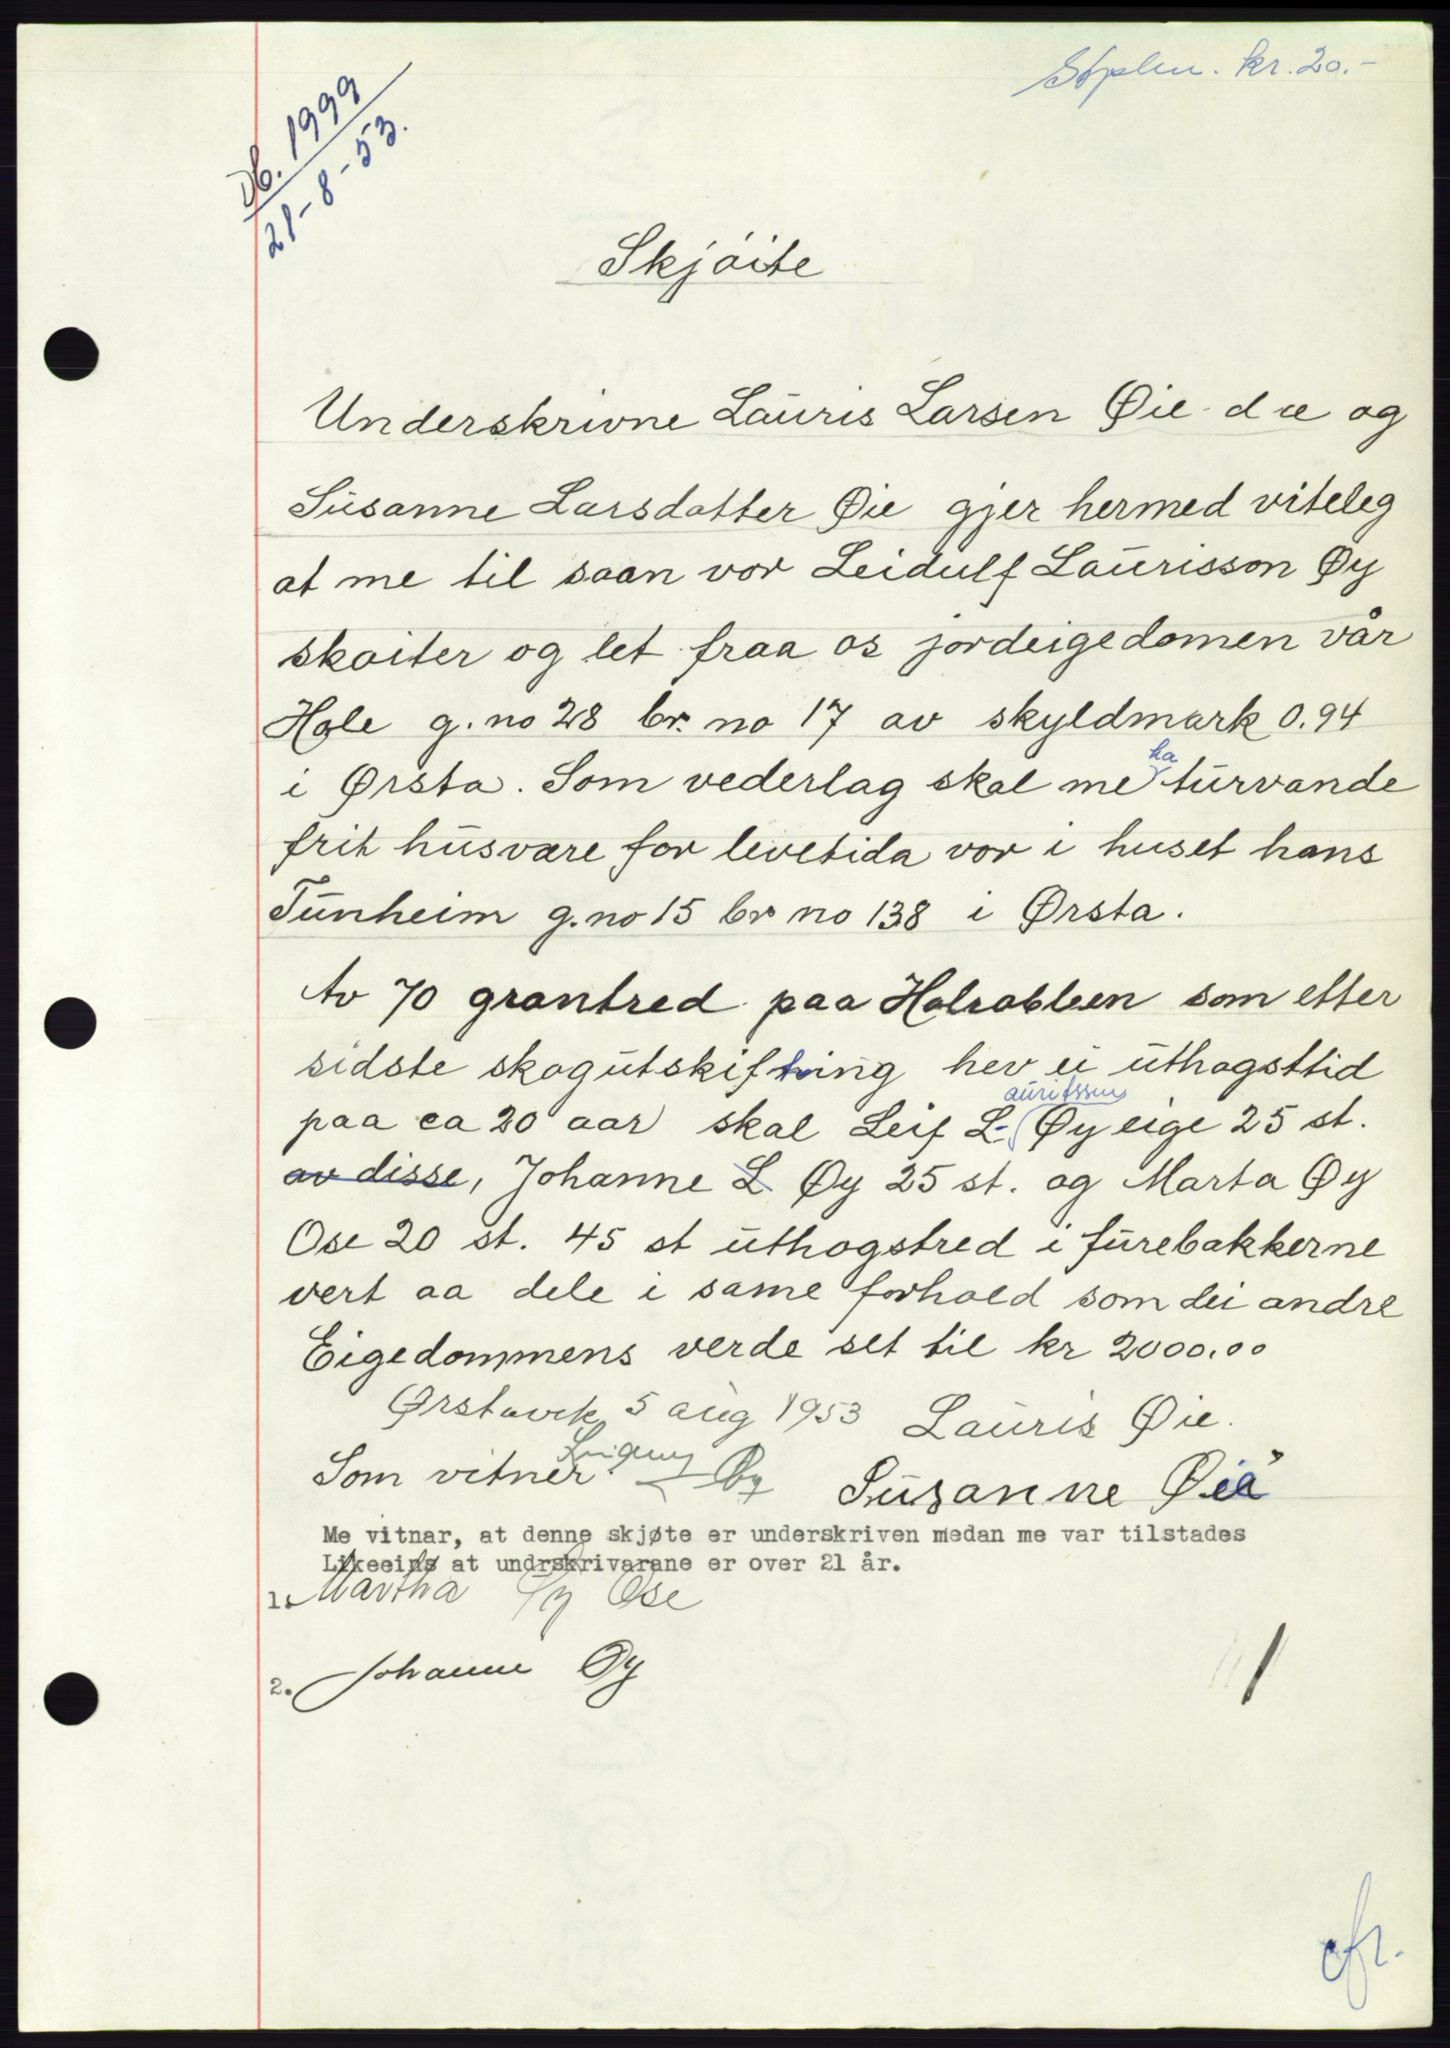 Stplm. kr. 20.-
Db. 1999
21-8-53.
Skjøite
Underskrivne Lauris Larsen Øie d æ og
Susanne Larsdatter Øie gjer hermed viteleg
at me til saan vor Leidulf Laurisson Øy
skøiter og let fraa os jordeigedomen vår
Hole g. no 28 br. no 17 av skyldmark 0.94
i Ørsta. Som vederlag skal me ha turvande
frit husvære for levetida vor i huset hans
Tunheim g. no 15 br no 138 i Ørsta.
Av 70 grantred paa som etter
sidste skogutskiftning hev ei uthogsttid
paa ca 20 aar skal Leif Lauritssen Øy eige 25 st.
av disse, Johanne L Øy 25 st. og Marta Øy
Ose 20 st. 45 st uthogstred i furebakkerne
vert aa dele i same forhold som dei andre
Eigedommens verde set til kr 2000.00
Ørstavik 5 aug 1953 Lauris Øie.
Som vitner Øy Susanne Øie
Me vitnar, at denne skjøte er underskriven medan me var tilstades
Likeeins at undrskrivarane er over 21 år.
1. Martha Øy Ose
2. Johanne Øy